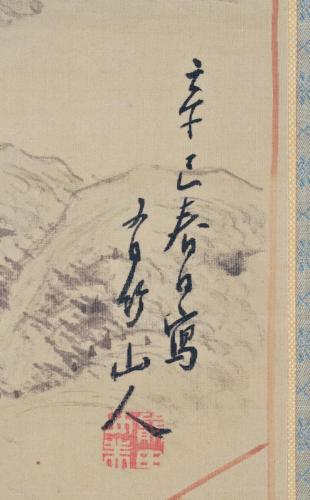 辛巳春日寫
有竹山人